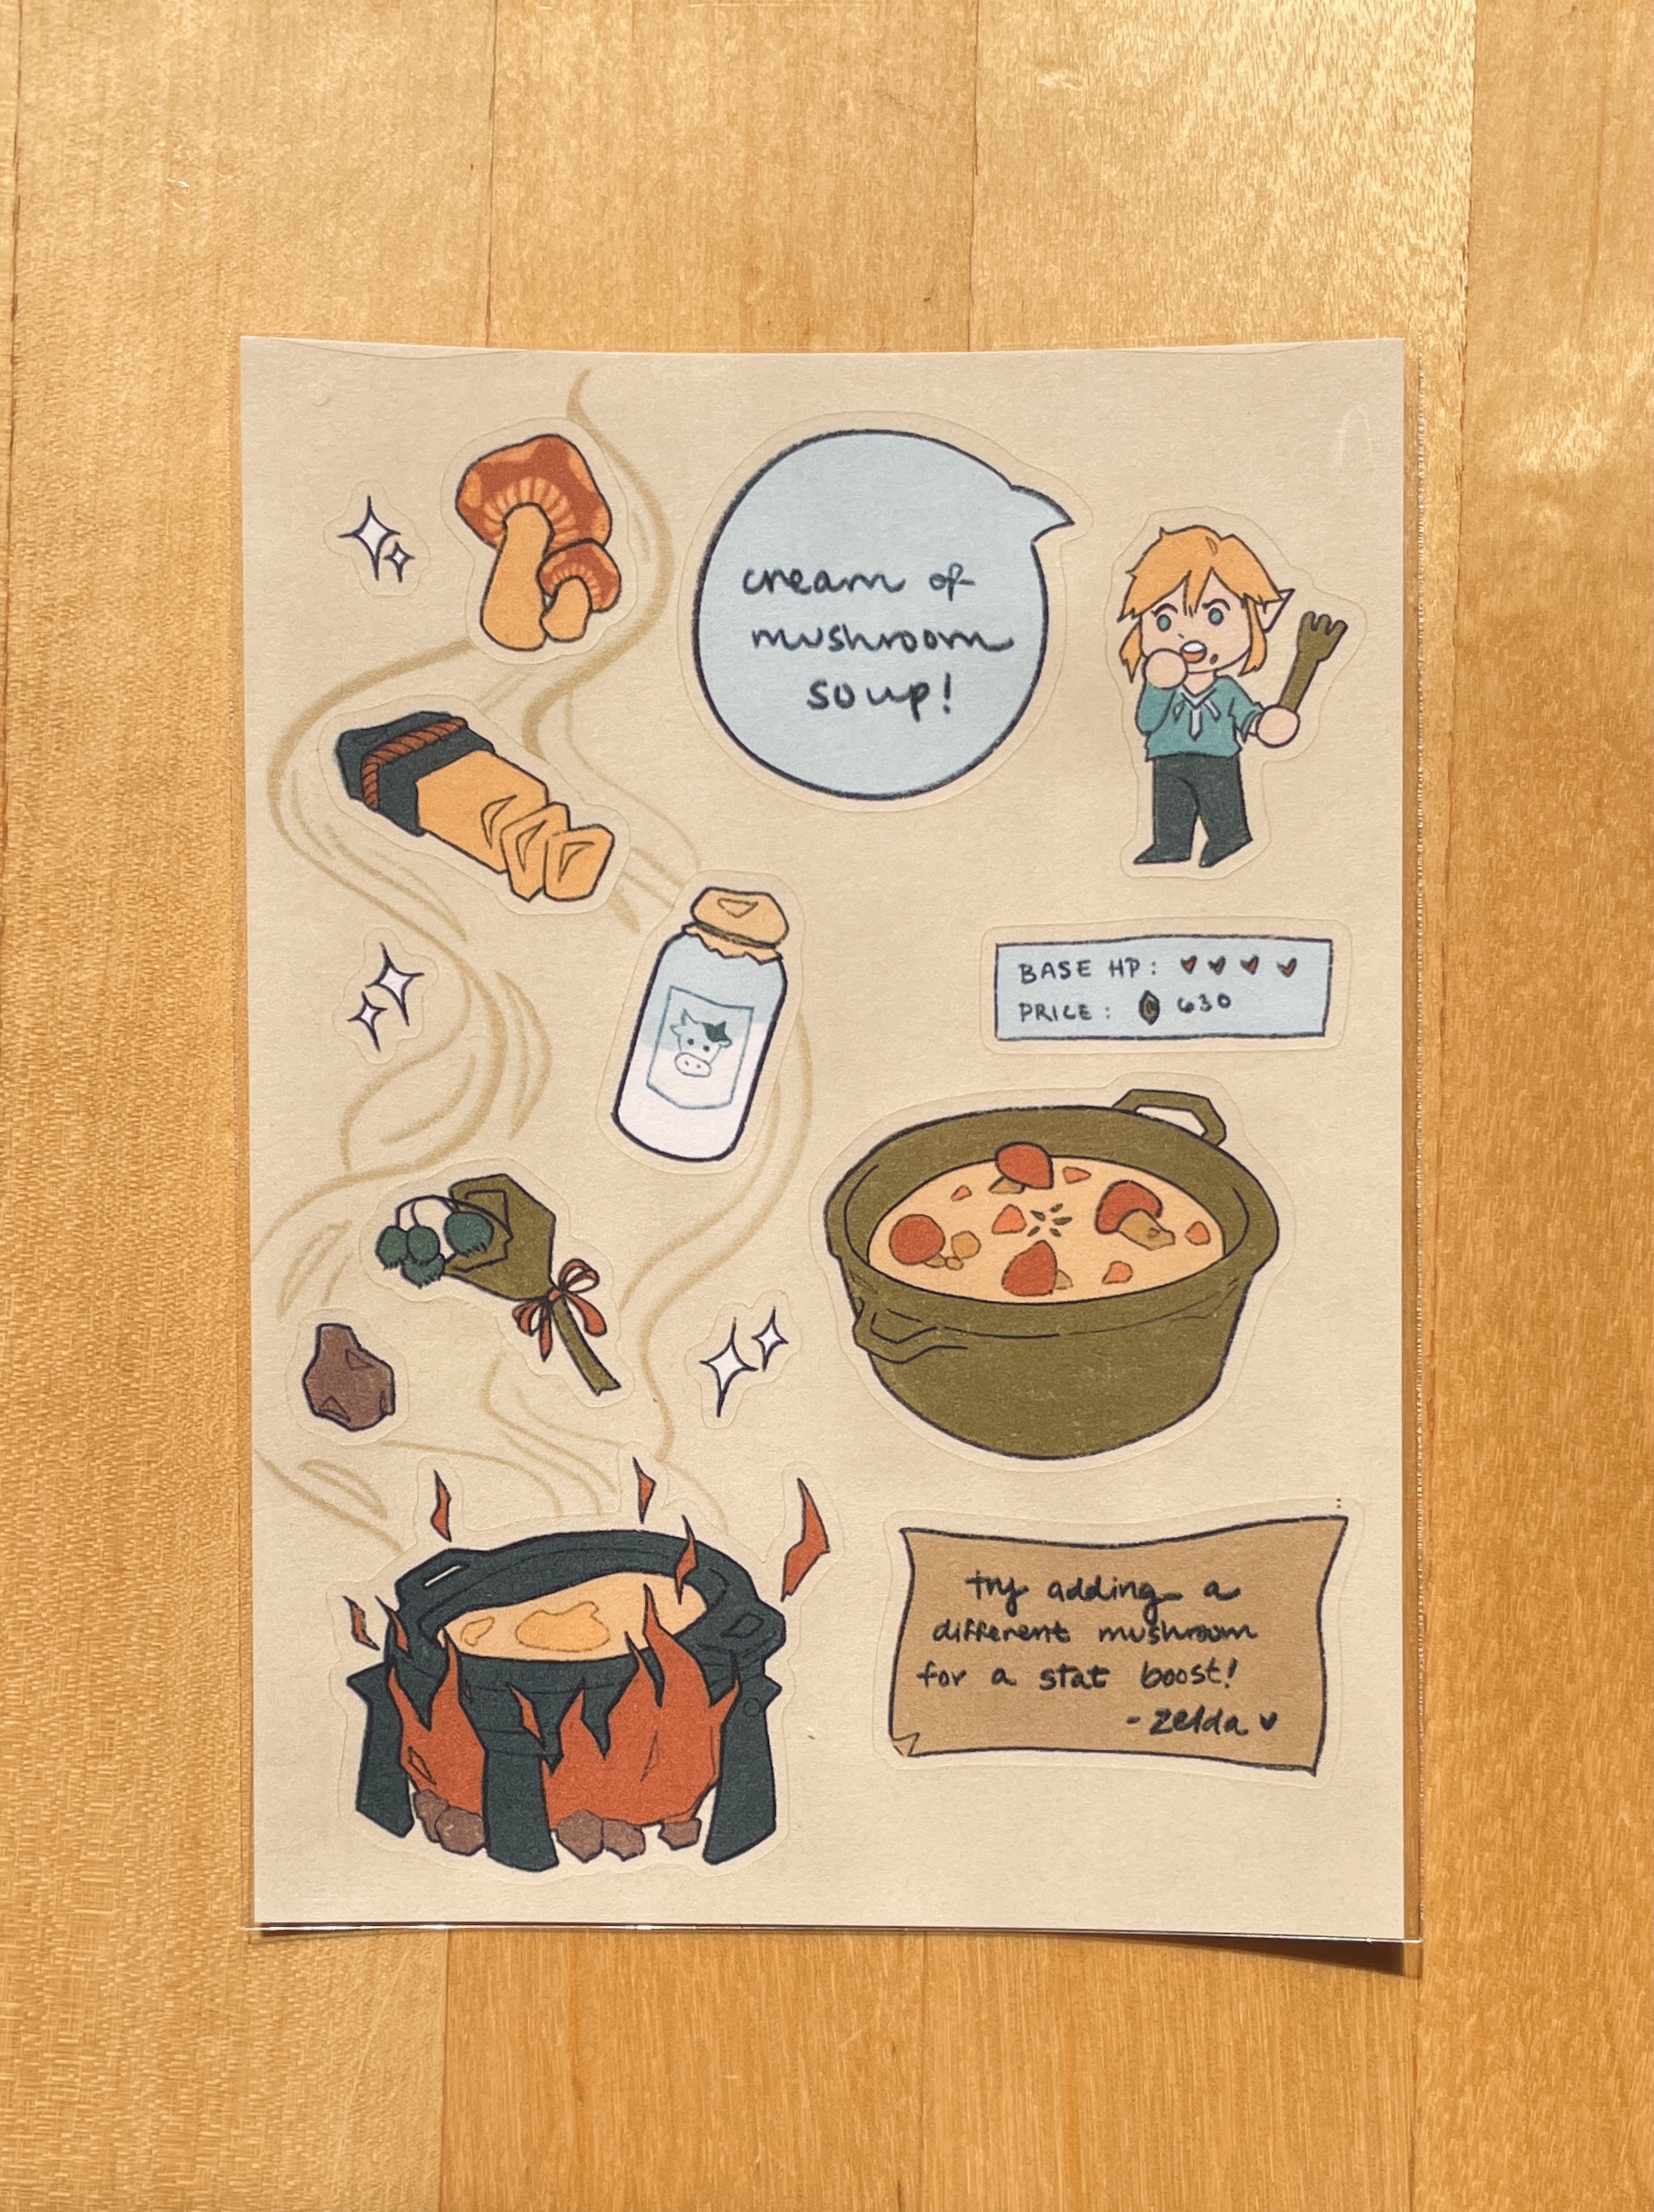 cream of
mushroom
soup!
BASE HP:
PRICE: 630
try adding a
different mushroom
for a stat boost!
- zelda ♥